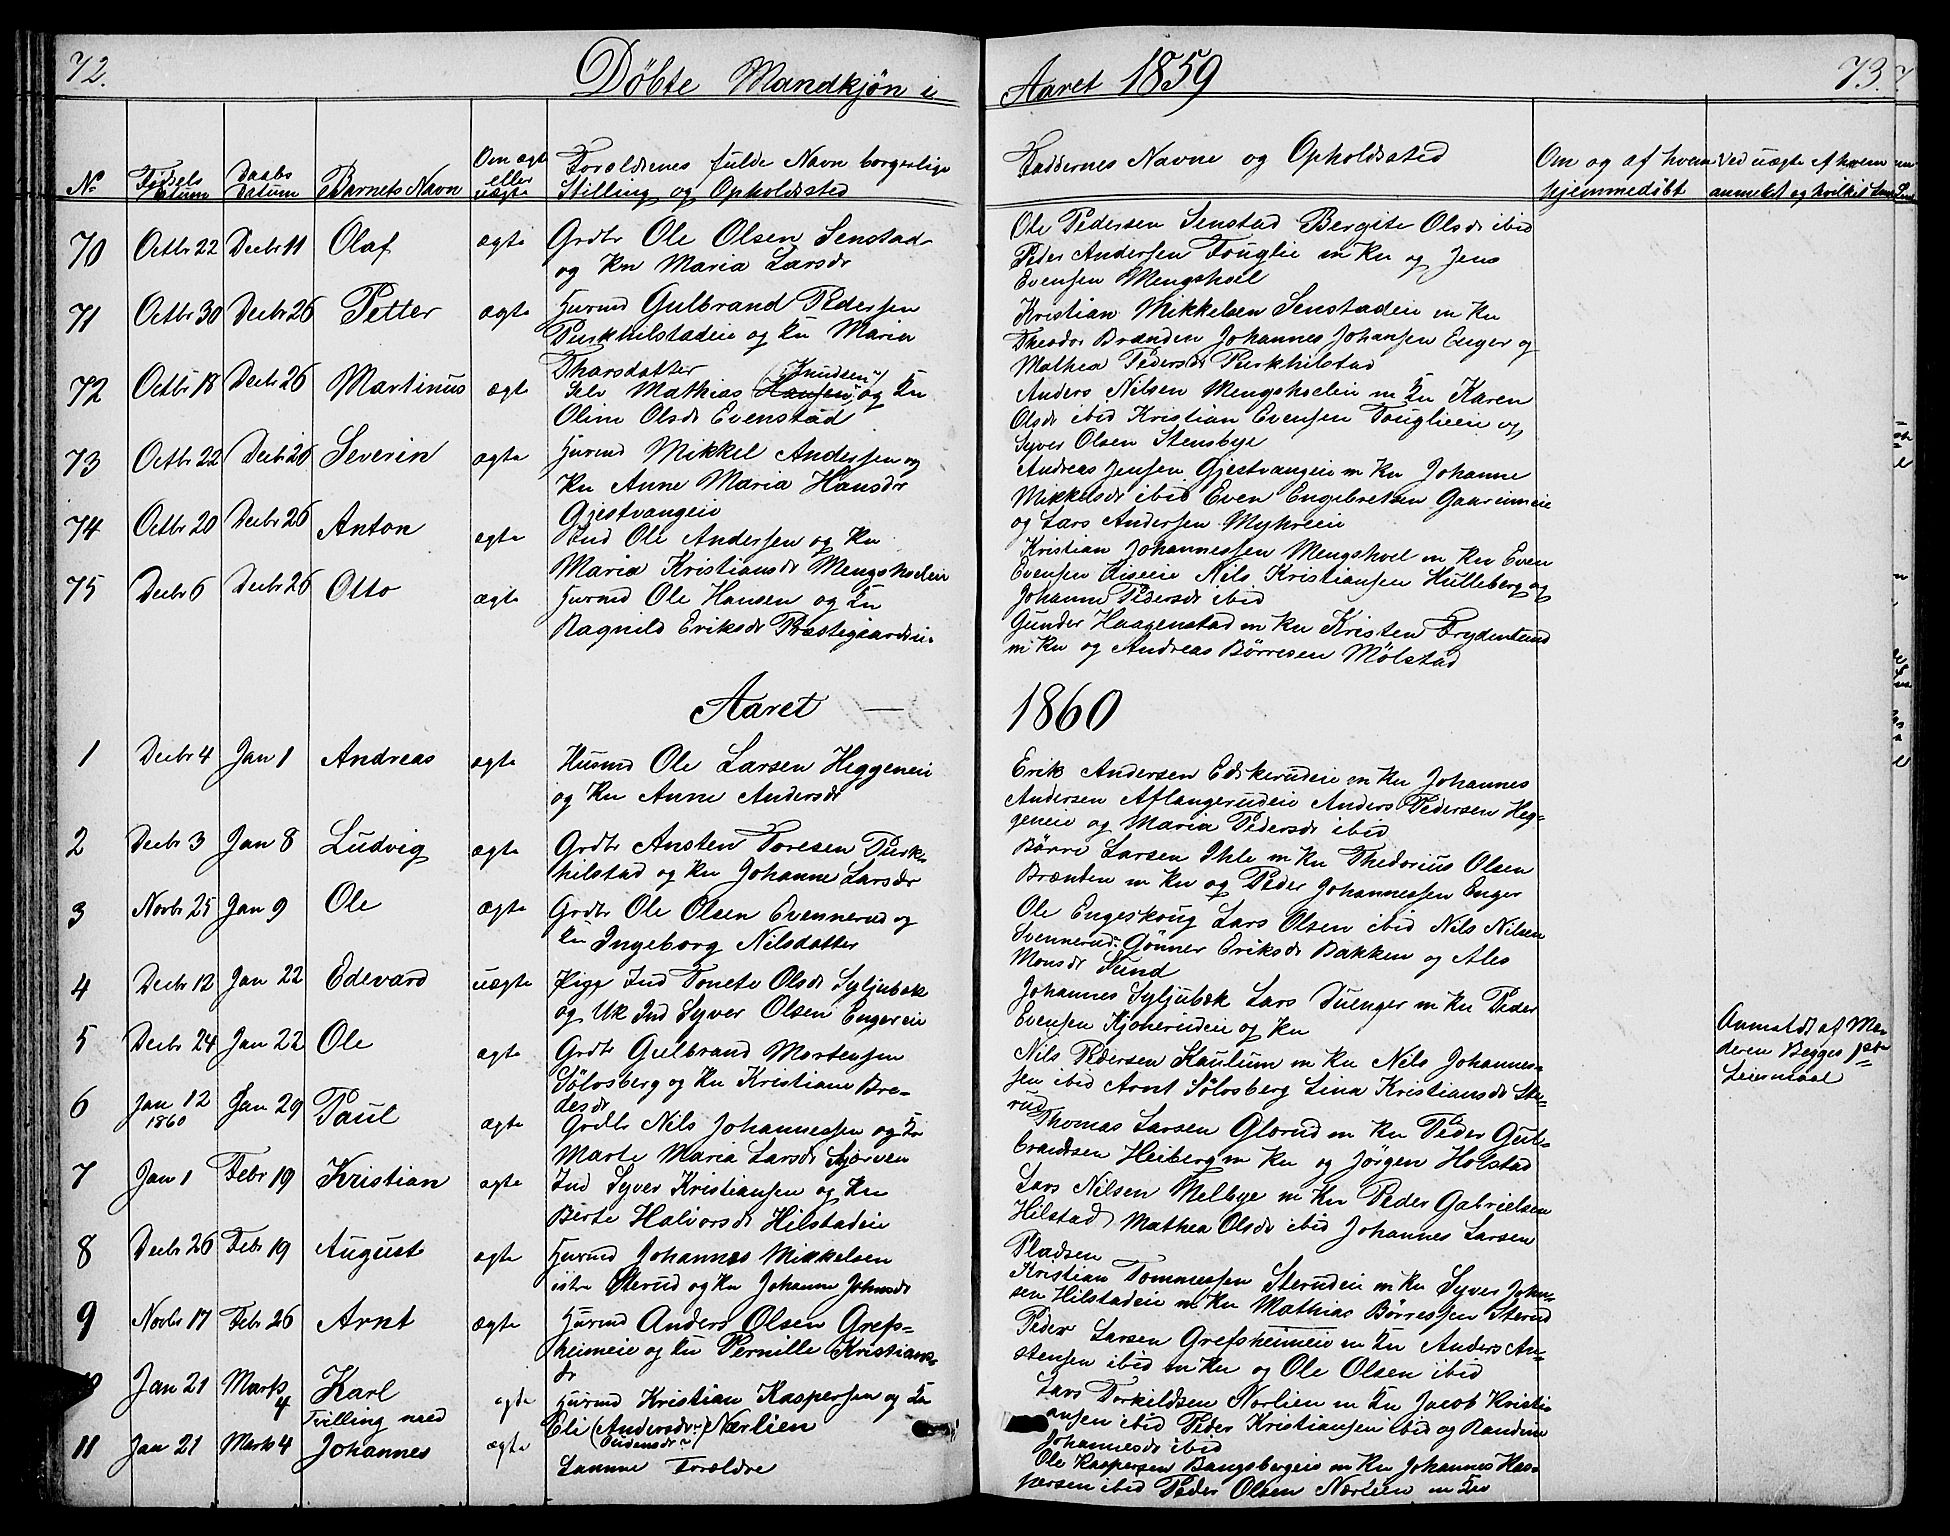 72.
Døbte Mandkjøn i
Aaret 1859
73.
No
Fødsels Datum
Daabs Datum
Barnets Navn
Om ægte eller uægte
Forældrenes fulde Navn borgerlige
Stilling og Opholdssted
Faddernes Navne og Opholdssted
Om og af hvem
hjemmedöbt
Ved uægte af hvem
anmeldt og hvilket
70 Octbr 22 Decbr 11 Olaf ægte Grdbr Ole Olsen Senstad
og Kn Maria Larsdr
Ole Pedersen Senstad Bergite Olsdr ibid
Peder Andersen Fouglie m Kn og Jens
Evensen Mengshoel
71 Octbr 30 Decbr 26 Petter ægte Husmd Gulbrand Pedersen
Purkhilstadeie og Kn Maria
Tharsdatter
Kristian Mikkelsen Senstadeie m Kn
Theodor Brænden Johannes Johansen Enger og
Mathea Pedersdr Purkhilstad
72 Octbr 18 Decbr 26 Martinus ægt Selv Mathias Hansen (Knudsen) og Kn
Oline Olsdr Evenstad
Anders Nilsen Mengshoeleie m Kn Karen
Olsdr ibid Kristian Evensen Fouglieeie og
Syver Olsen Stensbye
73 Octbr 22 Decbr 26 Severin ægte Husmd Mikkel Andersen og
Kn Anne Maria Hansdr
Gjestvangeie
Andreas Jensen Gjestvangeie m Kn Johanne
Mikkelsdr ibid Even Engebretsen Gaarimeie
og Lars Andersen Myhreeie
74 Octbr 20 Decbr 26 Anton ægte Ind Ole Andersen og Kn
Maria Kristiansdr Mengshoeleie
Kristian Johannessen Mengshoel m Kn Even
Evensen Kiseeie Nils Kristiansen Hulleberg og
Johanne Pedersdr ibid
75 Decbr 6 Decbr 26 Otto ægte Husmd Ole Hansen og Kn
Ragnild Eriksdr Præstegaardeie
Gunder Haagenstad m Kn Kristen Frydenlund
m Kn og Andreas Börresen Mölstad
Aaret 1860
1 Decbr 4 Jan 1 Andreas ægte Husmd Ole Larsen Heggeneie
og Kn Anne Andersdr
Erik Andersen Edskerudeie m Kn Johannes
Andersen Aflangerudeie Anders Pedersen Heg-
geneie og Maria Pedersdr ibid
2 Decbr 3 Jan 8 Ludvig ægte Grdbr Ansten Toresen Purk-
hilstad og Kn Johanne Larsdr
Börre Larsen Ihle m Kn Thedorius Olsen
Brænden m Kn og Peder Johannessen Enger
3 Novbr 25 Jan 9 Ole ægte Grdbr Ole Olsen Evennerud og
Kn Ingeborg Nilsdatter
Ole Engeskoug Lars Olsen ibid Nils Nilsen
Svennerud Gunner Eriksdr Bakken og Ales
Monsdr Sund
4 Decbr 12 Jan 22 Edevard uægte Pige Ind Tonete Olsdr Syljubæk
og Uk Ind Syver Olsen Engereie
Johannes Syljubæk Lars Tuenger m Kn Peder
Evensen Kjonerudeie og Kn
Anmeldt af Mo-
deren Begges 1ste
Leiermaal
5 Decbr 24 Jan 22 Ole ægte Grdbr Gulbrand Mortensen
Sölosberg og Kn Kristiane Bre-
desdr
Nils Pedersen Kaulum m Kn Nils Johannes-
sen ibid Arnt Sölosberg Lina Kristiansdr Ste-
rud
6 Jan 12 1860 Jan 29 Paul ægte Grdbr Nils Johannessen og Kn
Marte Maria Larsdr Skjerven
Thomas Larsen Glorud m Kn Peder Gul-
brandsen Heiberg m Kn og Jörgen Holstad
7 Jan 1 Febr 19 Kristian ægte Ind Syver Kristiansen og Kn
Berte Halvorsdr Hilstadeie
Lars Nilsen Melbye m Kn Peder Gabrielsen
Hilstad Mathea Olsdr ibid Johannes Larsen
Pladsen
8 Decbr 26 Febr 19 August ægte Husmd Johannes Mikkelsen
Sterud og Kn Johanne Johnsdr
Kristian Tommessen Sterudeie m Kn Syver John-
sen Hilstadeie m Kn Mathias Börressen Sterud
9 Novbr 17 Febr 26 Arnt ægte Husmd Anders Olsen Grefs-
heimeie og Kn Pernille Kristians-
dr
Peder Larsen Grefsheimeie m Kn Anders An-
stensen ibid m Kn og Ole Olsen ibid
10 Jan 21 Marts 4 Karl ægte Husmd Kristian Kaspersen og Kn
Tvilling med
Eli (Andersdr) Nærlien
Lars Torkildsen Norlien m Kn Jacob Kristi-
ansen ibid Peder Kristiansen ibid og Randine
Johannesdr ibid
11 Jan 21 Marts 4 Johannes ægte
Samme Forældre
Ole Kaspersen Bangsbergeie m Kn Johannes Kas-
persen ibid Peder Olsen Nærlien m Kn